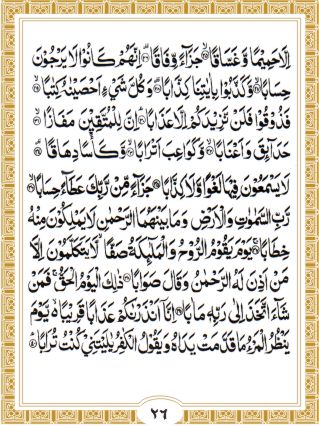 اِلَّا حَمِيْمًا وَّغَسَّاقًا ﴿٢٥﴾ جَزَآءً وِّفَاقًا ﴿٢٦﴾ اِنَّهُمْ كَانُوْا لَا يَرْجُوْنَ
حِسَابًا ﴿٢٧﴾ وَّكَذَّبُوْا بِاٰيٰتِنَا كِذَّابًا ﴿٢٨﴾ وَكُلَّ شَيْءٍ اَحْصَيْنٰهُ كِتٰبًا ﴿٢٩﴾
فَذُوْقُوْا فَلَنْ نَّزِيْدَكُمْ اِلَّا عَذَابًا ﴿٣٠﴾ اِنَّ لِلْمُتَّقِيْنَ مَفَازًا ﴿٣١﴾
حَدَآئِقَ وَاَعْنَابًا ﴿٣٢﴾ وَّكَوَاعِبَ اَتْرَابًا ﴿٣٣﴾ وَّكَاْسًا دِهَاقًا ﴿٣٤﴾
لَا يَسْمَعُوْنَ فِيْهَا لَغْوًا وَّلَا كِذّٰبًا ﴿٣٥﴾ جَزَآءً مِّنْ رَّبِّكَ عَطَآءً حِسَابًا ﴿٣٦﴾
رَّبِّ السَّمٰوٰتِ وَالْاَرْضِ وَمَا بَيْنَهُمَا الرَّحْمٰنِ لَا يَمْلِكُوْنَ مِنْهُ
خِطَابًا ﴿٣٧﴾ يَوْمَ يَقُوْمُ الرُّوْحُ وَالْمَلٰٓئِكَةُ صَفًّا لَّا يَتَكَلَّمُوْنَ اِلَّا
مَنْ اَذِنَ لَهُ الرَّحْمٰنُ وَقَالَ صَوَابًا ﴿٣٨﴾ ذٰلِكَ الْيَوْمُ الْحَقُّ فَمَنْ
شَآءَ اتَّخَذَ اِلٰى رَبِّهٖ مَاٰبًا ﴿٣٩﴾ اِنَّآ اَنْذَرْنٰكُمْ عَذَابًا قَرِيْبًا يَّوْمَ
يَنْظُرُ الْمَرْءُ مَا قَدَّمَتْ يَدٰهُ وَيَقُوْلُ الْكٰفِرُ يٰلَيْتَنِيْ كُنْتُ تُرٰبًا ﴿٤٠﴾
٢٦